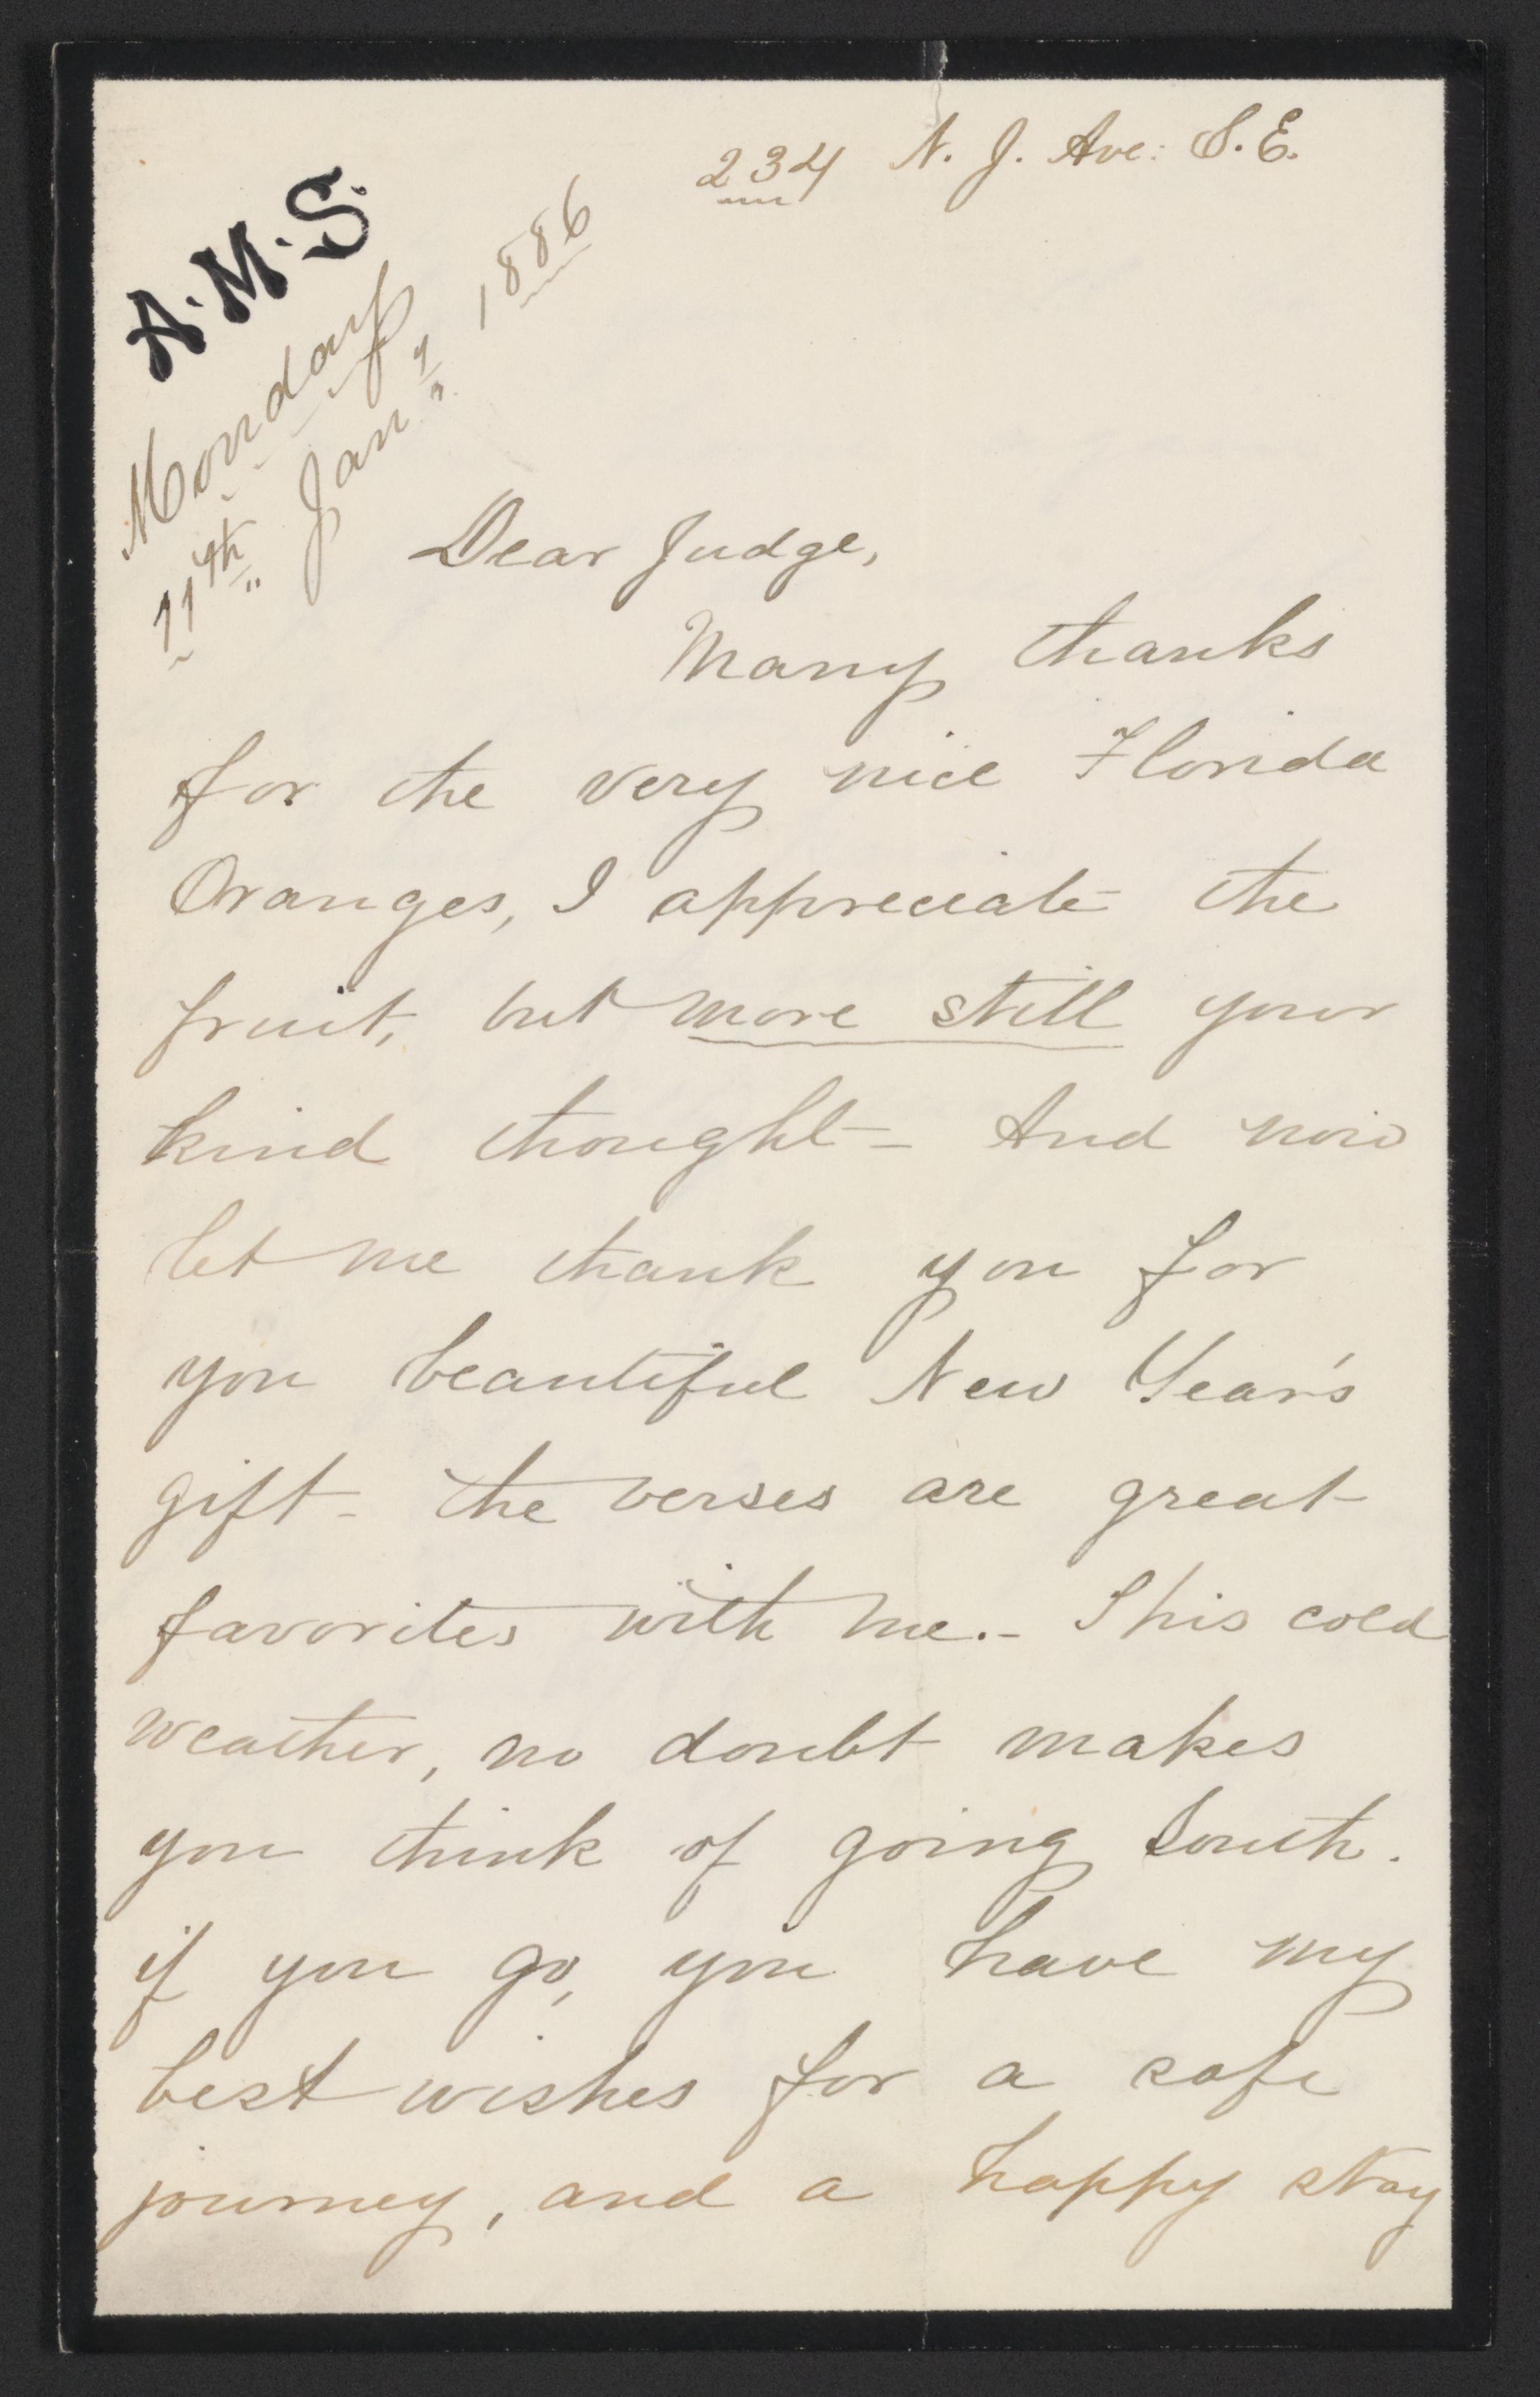 234 N. J. Ave: S.E.
A.M.S.
Monday
11th Jany 1886
Dear Judge,
Many thanks
for the very nice Florida
Oranges, I appreciate the
fruit, but more still your
kind thought - And now
let me thank you for
you beautiful New Year's
gift - the verses are great
favorites with me. - This cold
weather, no doubt makes
you think of going South.
if you go, you have my
best wishes for a safe
journey, and a happy stay